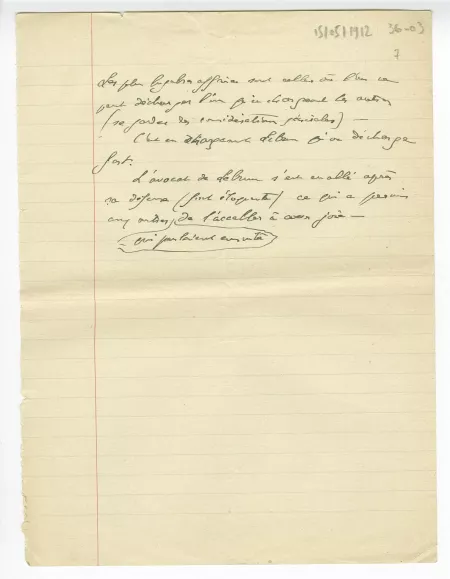 15/05/1912 36-03
7
Les plus lugubres affaires sont celles où l'on ne
peut décharger l'un qu'en chargeant les autres
(se garder des considérations générales) —
C'est en chargeant Lebrun qu'on décharge
fort.
L'avocat de Lebrun s'est en allé après
sa défense (fort éloquente) ce qui a permis
aux autres, de l'accabler à cœur joie —
qui parlaient ensuite